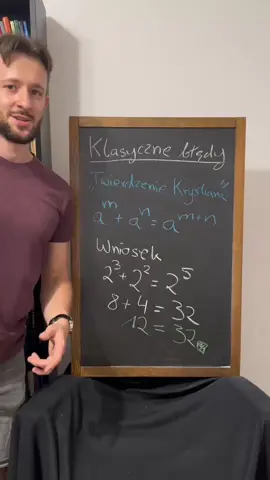 Klasyczne błędy
„Twierdzenie Krystiana”
a^m + a^n = a^{m+n}
Wniosek
2^3 + 2^2 = 2^5
8 + 4 = 32
12 = 32